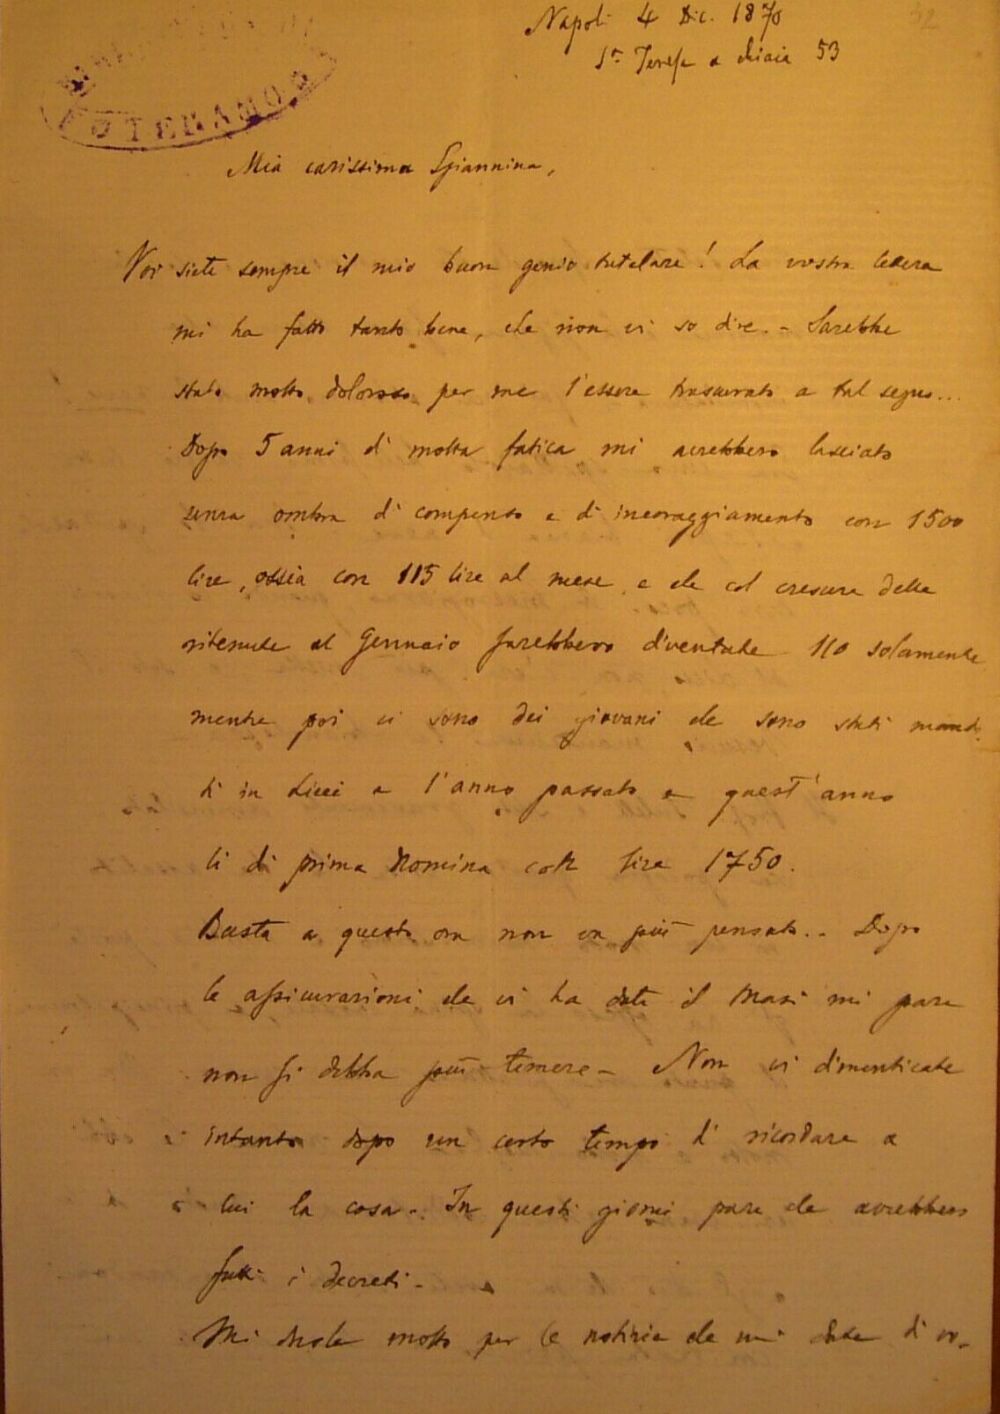 Napoli 4 Dic. 1870
Sta Teresa a Chiaia 53
TERAMO
Mia carissima Giannina,
Voi siete sempre il mio buon genio tutelare! La vostra lettera
mi ha fatto tanto bene, che non vi so dire. - Sarebbe
stato molto doloroso per me l'essere trascurato a tal segno...
Dopo 5 anni di molta fatica mi avrebbero lasciato
senza ombra di compenso e di incoraggiamento con 1500
lire, ossia con 115 lire al mese, e che col crescere delle
ritenute al Gennaio sarebbero diventate 110 solamente
mentre poi vi sono dei giovani che sono stati manda-
ti in Licei a l'anno passato e quest'anno
li di prima nomina con lire 1750.
Basta a questo ora non va più pensato.. Dopo
le assicurazioni che vi ha date il Masi mi pare
non si debba più temere - Non vi dimenticate
intanto dopo un certo tempo di ricordare a
lui la cosa.. In questi giorni pare che avrebbero
fatti i decreti -
Mi duole molto per le notizie che mi date di vo-